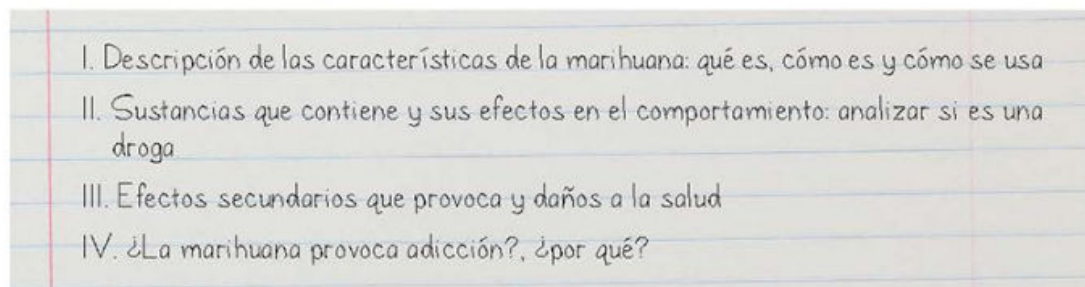 I. Descripción de las características de la marihuana: qué es, cómo es y cómo se usa
II. Sustancias que contiene y sus efectos en el comportamiento: analizar si es una
droga
III. Efectos secundarios que provoca y daños a la salud
IV. ¿La marihuana provoca adicción?, ¿por qué?